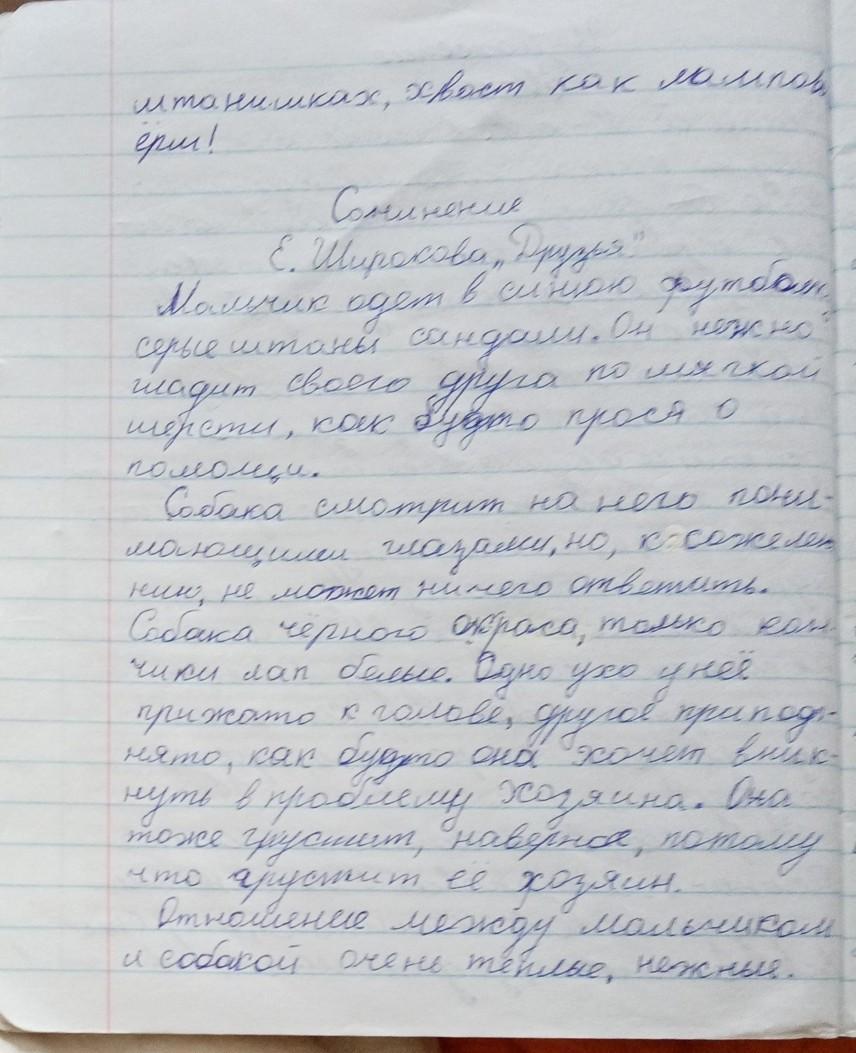 штанишках, хвост как лампов
ёрш!
Сочинение
Е. Широкова „Друзья"
Мальчик одет в синюю футболк
серые штаны сандали. Он нежно
гладит своего друга по мягкой
шерсти, как будто прося о
помощи.
Собака смотрит на него пони-
мающими глазами, но, к сожелен
нию, не может ничего ответить.
Собака чёрного окраса, только кон
чики лап белые. Одно ухо у неё
прижато к голове, другое припод-
нято, как будто она хочет вник-
нуть в проблему хозяина. Она
тоже грустит, наверное, потому
что грустит её хозяин.
Отношение между мальчиком
и собакой очень тёплые, нежные.